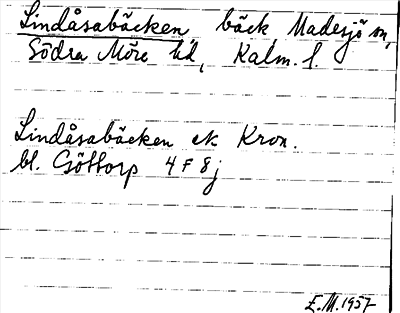 Lindåsabäcken bäck Madesjö sn,
Södra Möre hd, Kalm. l.
Lindåsabäcken ek Kron.
bl. Göttorp 4 F 8 j
E.M. 1957